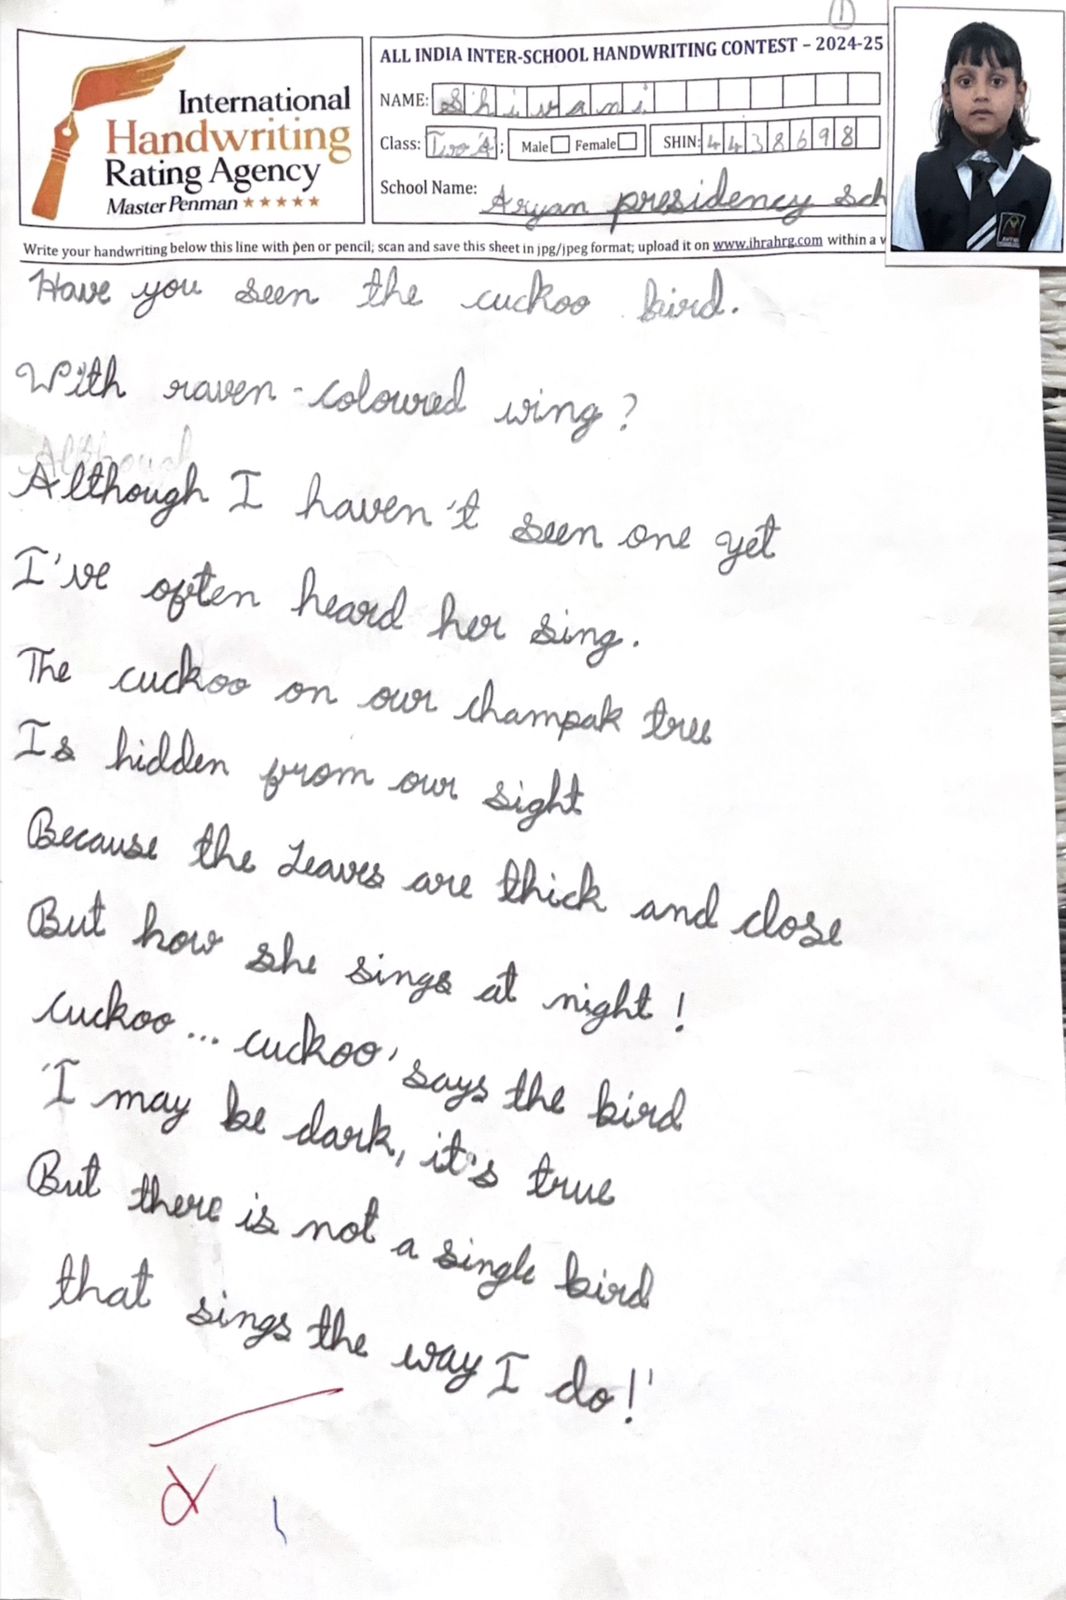 1
International
Handwriting
Rating Agency
Master Penman ★★★★★
ALL INDIA INTER-SCHOOL HANDWRITING CONTEST – 2024-25
NAME: Shivani
Class: Two'A'; Male Female SHIN: 4438698
School Name: Aryan presidency sch
Write your handwriting below this line with pen or pencil; scan and save this sheet in jpg/jpeg format; upload it on www.ihrahrg.com within a w
Have you seen the cuckoo bird.
With raven-coloured wing?
Although
Although I haven't seen one yet
I've often heard her sing.
The cuckoo on our champak tree
Is hidden from our sight
Because the Leaves are thick and close
But how she sings at night!
cuckoo... cuckoo' says the bird
'I may be dark, it's true
But there is not a single bird
that sings the way I do!'